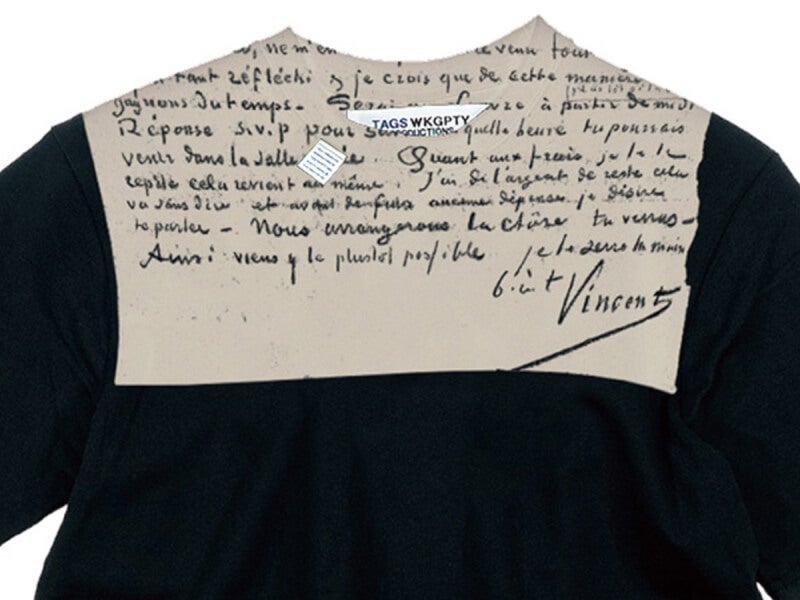 ne m'en
réfléchi & je crois que de cette manière
gagnons du temps. Serai Louvre à partir de midi
TAGS WKGPTY
Réponse s.v.p pour quelle heure tu pourrais
venir dans la salle Quant aux frais je te le
répète cela revient au même. J'ai de l'argent de reste cela
va sans dire et avant de faire aucune dépense je désire
te parler – Nous arrangerons la chôse tu verras –
Ainsi viens y le plustot possible je te serre la main
b. à t Vincent